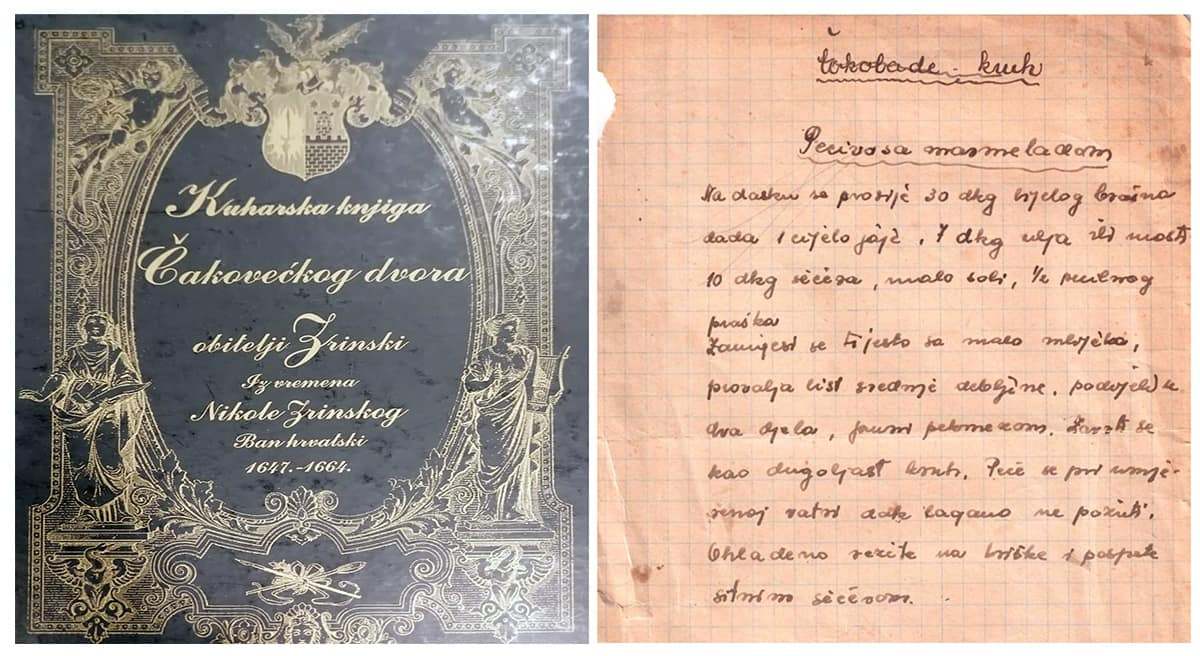 Kuharska knjiga
Čakovečkog dvora
obitelji Zrinski
Iz vremena
Nikole Zrinskog
Ban hrvatski
1647.-1664.
Čokolade - kruh
Pecivo sa marmeladom
Na dasku se prosije 30 dkg bijelog brašna
dada 1 cijelo jaje, 7 dkg ulja ili masti
10 dkg šećera, malo soli, 1/2 praška
Zamijesi se tijesto sa malo mlijeka,
provalja list srednje debljine, podijeli u
dva dijela, puni pekmezom. Zavrti se
kao dugoljast kruh. Peče se pri umje-
renoj vatri dok lagano ne požuti.
Ohlađeno režite na kriške i pospite
sitnim šećerom.